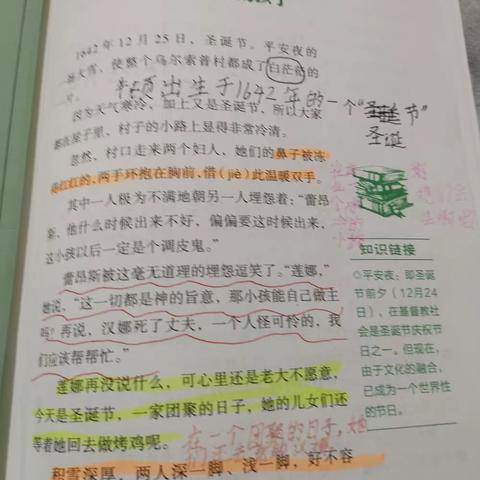 1642年12月25日，圣诞节。平安夜的
大雪，使整个乌尔索普村都成了白茫茫的
片。
牛顿出生于1642年的一个“圣诞节”
圣诞
因为天气寒冷，加上又是圣诞节，所以大家
都在屋子里，村子的小路上显得非常冷清。
忽然，村口走来两个妇人，她们的鼻子被冻
得红红的，两手环抱在胸前，借（jiè）此温暖双手。
其中一人极为不满地朝另一人埋怨着：“蕾昂
斯，他什么时候出来不好，偏偏要这时候出来，
这小孩以后一定是个调皮鬼。”
蕾昂斯被这毫无道理的埋怨逗笑了。“莲娜，”
她说，“这一切都是神的旨意，那小孩能自己做主
吗？再说，汉娜死了丈夫，一个人怪可怜的，我
们应该帮帮忙。”
莲娜再没说什么，可心里还是老大不愿意，
今天是圣诞节，一家团聚的日子，她的儿女们还
等着她回去做烤鸡呢。
在一个团聚的日子，她
积雪深厚，两人深一脚、浅一脚，好不容
知识链接
◎平安夜：即圣诞
节前夕（12月24
日），在基督教社
会是圣诞节庆祝节
日之一。但现在，
由于文化的融合，
已成为一个世界性
的节日。